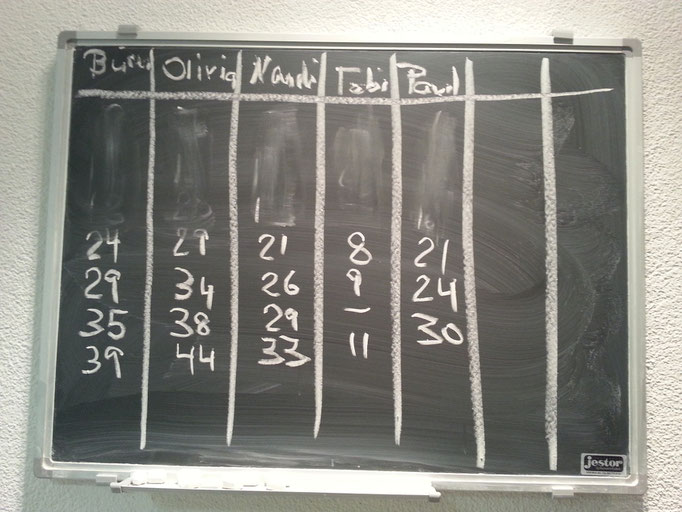 Olivia Nandi Tabi Paul
24 29 21 8 21
29 34 26 9 24
35 38 29 - 30
39 44 33 11
jestor